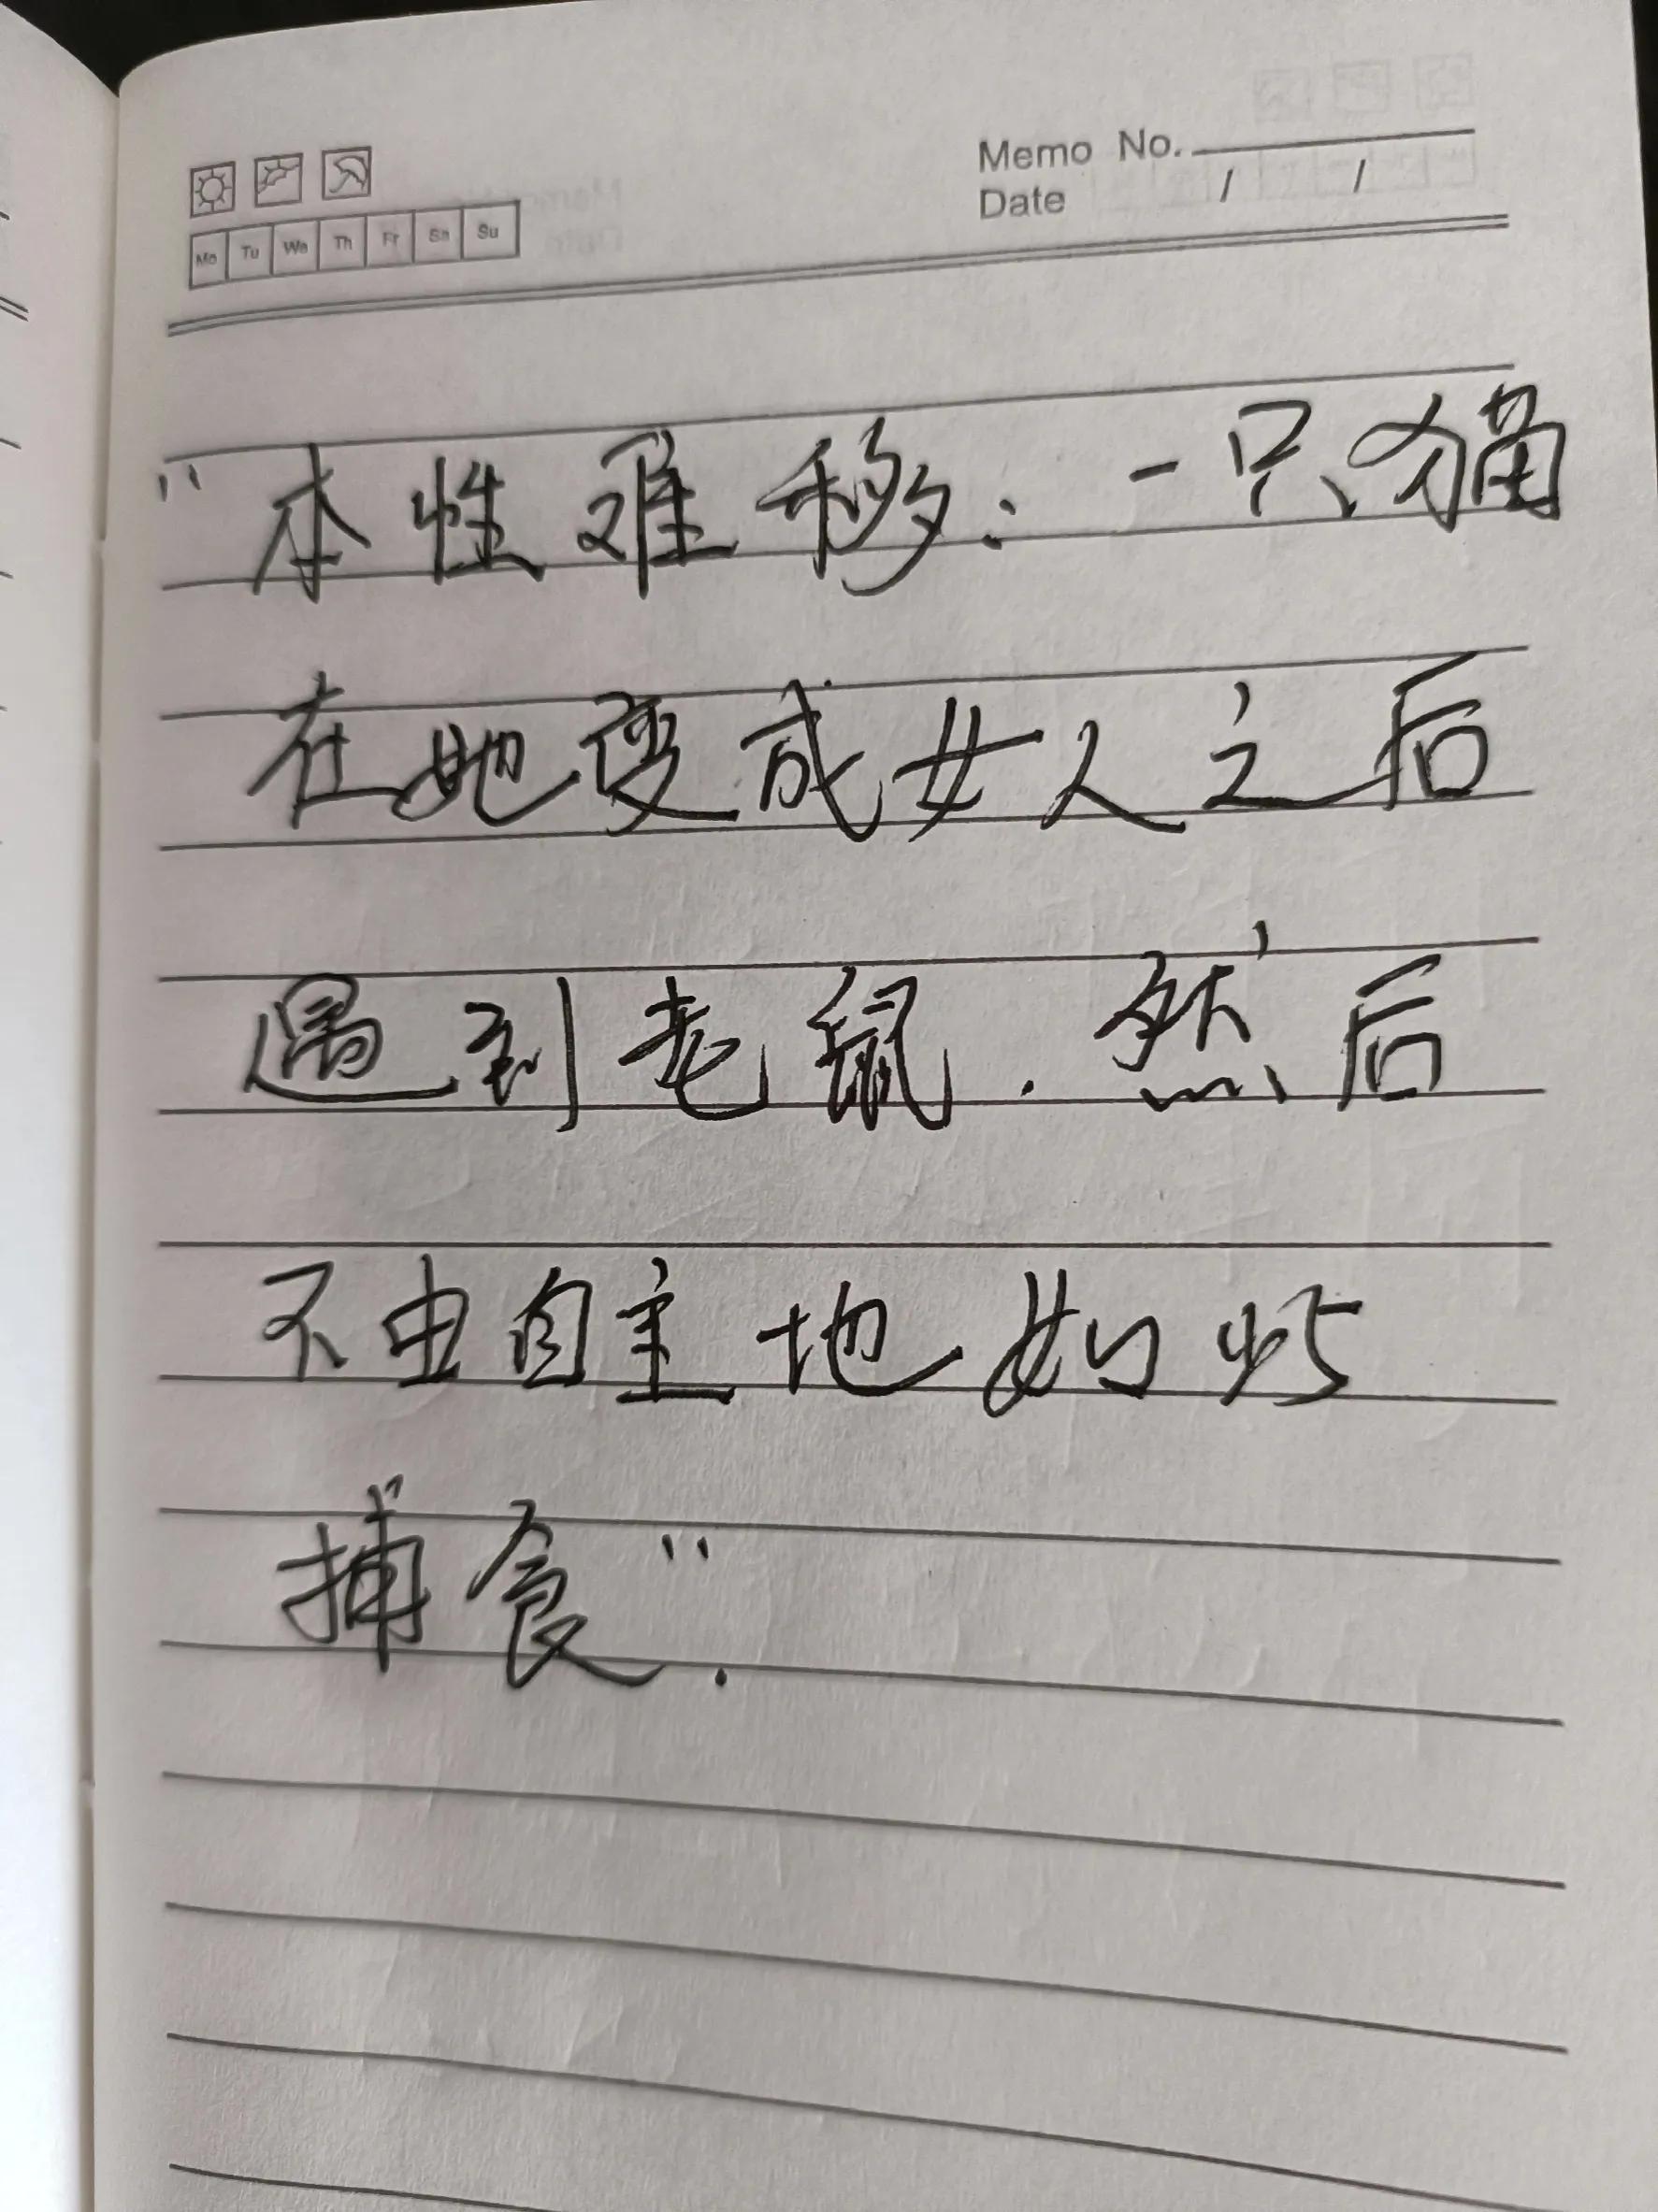 Memo No.
Date / /
Mo Tu We Th Fr Sa Su
"本性难移：一只猫
在她变成女人之后
遇到老鼠．然后
不由自主地如此
捕食".